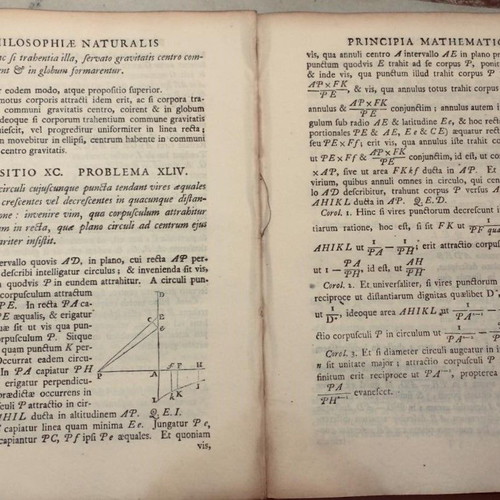 PHILOSOPHIÆ NATURALIS
ac si trahentia illa, servato gravitatis centro com-
erent & in globum formarentur.
r eodem modo, atque propositio superior.
motus corporis attracti idem erit, ac si corpora tra-
communi gravitatis centro, coirent & in globum
ideoque si corporum trahentium commune gravitatis
uiescit, vel progreditur uniformiter in linea recta;
m movebitur in ellipsi, centrum habente in communi
centro gravitatis.
SITIO XC. PROBLEMA XLIV.
circuli cujuscunque puncta tendant vires æquales
crescentes vel decrescentes in quacunque distan-
one: invenire vim, qua corpusculum attrahitur
um in recta, quæ plano circuli ad centrum ejus
ariter insistit.
ntervallo quovis AD, in plano, cui recta AP per-
describi intelligatur circulus; & invenienda sit vis,
n quodvis P in eundem attrahitur. A circuli pun-
corpusculum attractum
PE. In recta PA ca-
PE æqualis, & erigatur
uæ sit ut vis qua pun-
corpusculum P. Sitque
quam punctum K per-
Occurrat eadem circu-
In PA capiatur PH
erigatur perpendicu-
prædictæ occurrens in
sculi P attractio in cir-
AHIL ducta in altitudinem AP. Q.E.I.
capiatur linea quam minima Ee. Jungatur Pe,
capiantur PC, Pf ipsi Pe æquales. Et quoniam
vis,
D
E
C
e
P
A
F
f
H
I
k
K
L
PRINCIPIA MATHEMATIC
vis, qua annuli centro A intervallo AE in plano per
punctum quodvis E trahit ad se corpus P, ponit
& inde vis, qua punctum illud trahit corpus P
AP×FK/PE, & vis, qua annulus totus trahit corpus
annulus & AP×FK/PE conjunctim; annulus autem i
gulum sub radio AE & latitudine Ee, & hoc rect
portionales PE & AE, Ee & CE) æquatur recta
seu PE×Ff; erit vis, qua annulus iste trahit corp
ut PE×Ff & AP×FK/PE conjunctim, id est, ut co
×AP, sive ut area FKkf ducta in AP. Et
virium, quibus annuli omnes in circulo, qui cent
lo AD describitur, trahunt corpus P versus A
AHIKL ducta in AP. Q.E.D.
Corol. 1. Hinc si vires punctorum decrescunt in
tiarum ratione, hoc est, si sit FK ut 1/PF quad
AHIKL ut 1/PA — 1/PH; erit attractio corpus
ut 1 — PA/PH, id est, ut AH/PH.
Et universaliter, si vires punctorum
reciproce ut distantiarum dignitas quælibet Dⁿ,
ut 1/Dⁿ, ideoque area AHIKL ut 1/PAⁿ⁻¹ —
ctio corpusculi P in circulum ut
Corol. 3. Et si diameter circuli augeatur in in
n sit unitate major; attractio corpusculi P
finitum erit reciproce ut PAⁿ⁻², propterea
PA/PHⁿ⁻¹ evanescet.